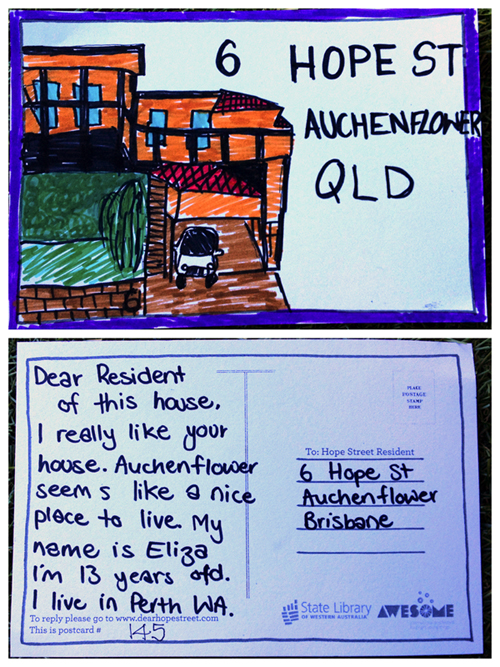 6 HOPE ST
AUCHENFLOWER
QLD
Dear Resident
of this house,
I really like your
house. Auchenflower
seems like a nice
place to live. My
name is Eliza
I'm 13 years old.
I live in Perth WA.
To reply please go to www.dearhopestreet.com
This is postcard # 145
PLACE
POSTAGE
STAMP
HERE
To: Hope Street Resident
6 Hope St
Auchenflower
Brisbane
State Library
OF WESTERN AUSTRALIA
AWESOME